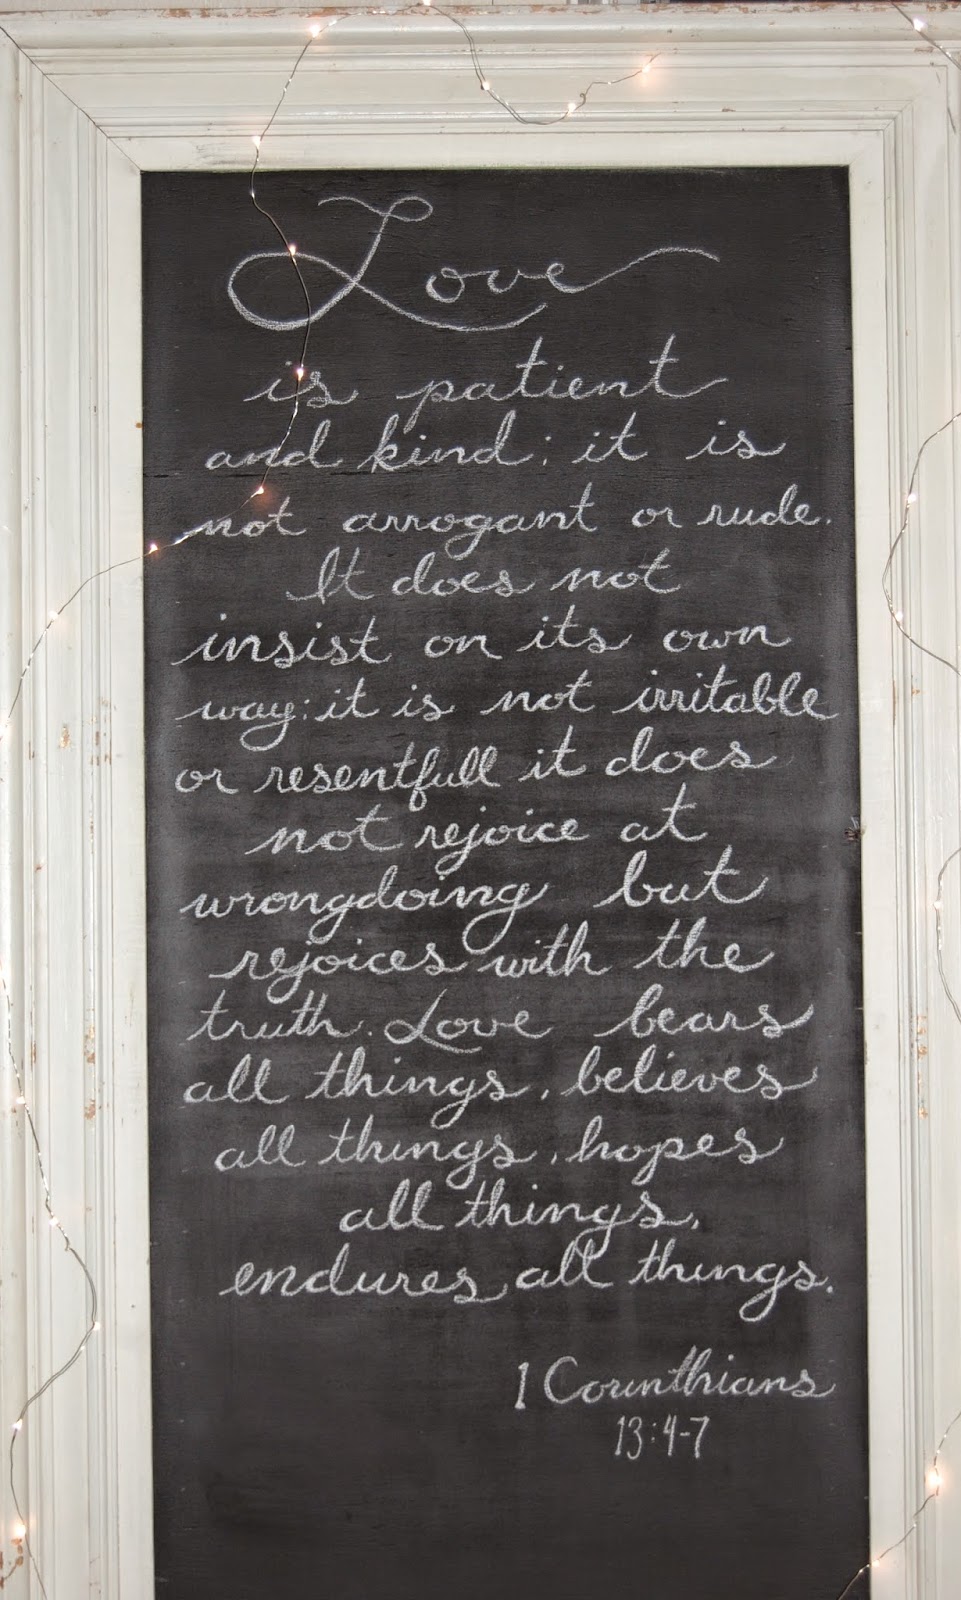 Love
is patient
and kind; it is
not arrogant or rude.
It does not
insist on its own
way: it is not irritable
or resentfull it does
not rejoice at
wrongdoing but
rejoices with the
truth. Love bears
all things, believes
all things, hopes
all things,
endures all things.
1 Corinthians
13:4-7